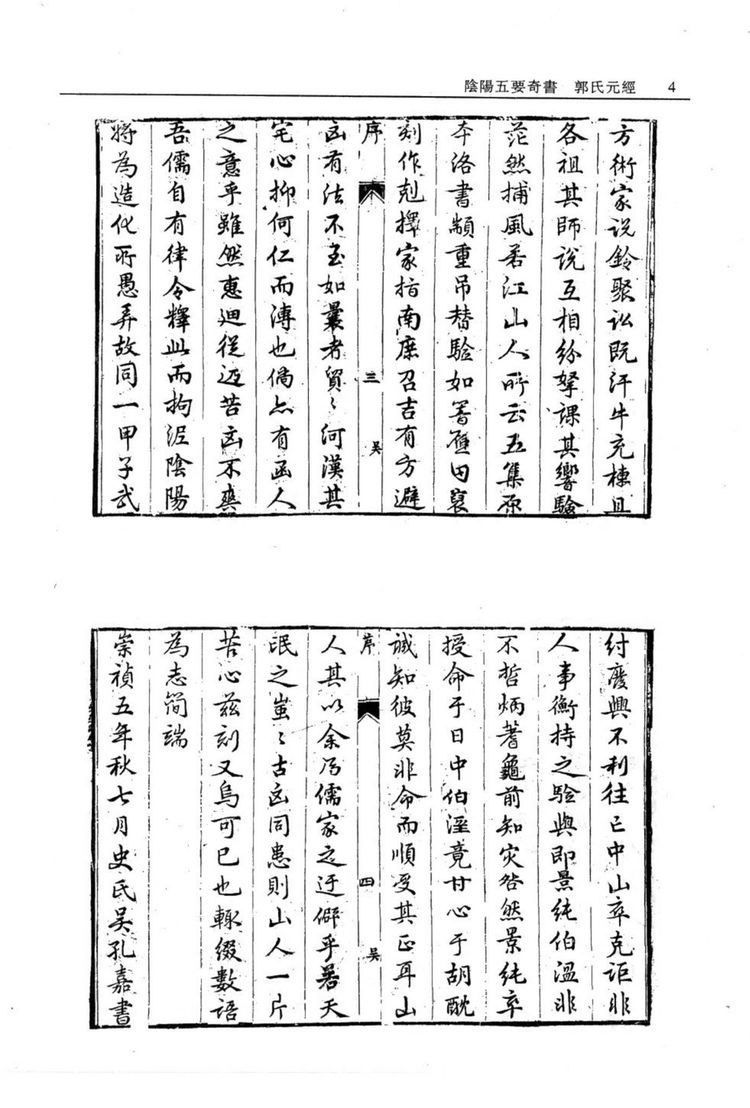 陰陽五要奇書　郭氏元經　4
方術家说鈴聚訟既汗牛充棟且
各祖其師说互相紛拏課其響驗
茫然捕風若江山人所云五集原
本洛書顓重吊替驗如箸蔡因裒
刻作剋擇家指南庶召吉有方避
序
三
吴
凶有法不至如曩者貿〻何漢其
宅心抑何仁而溥也倘亦有函人
之意乎雖然惠迪從逆吉凶不爽
吾儒自有律令釋此而拘泥陰陽
將為造化所愚弄故同一甲子武
紂廢興不利往亡中山卒克詎非
人事衡持之驗與即景純伯温非
不哲炳蓍龜前知灾咎然景純卒
授命于日中伯温竟甘心于胡酖
诚知彼莫非命而順受其正耳山
序
四
吴
人其以余乃儒家之迂僻乎若天
氓之蚩〻吉凶同患則山人一片
苦心兹刻又烏可已也輒缀數语
為志简端
崇禎五年秋七月史氏吴孔嘉書